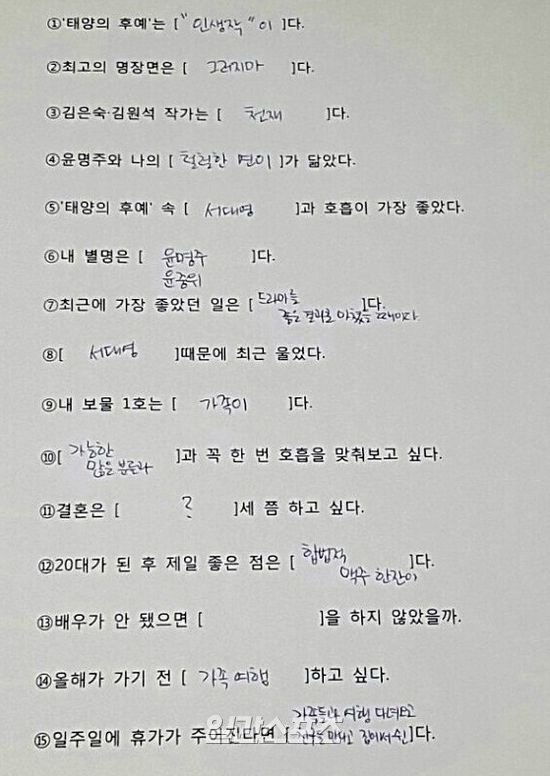 ①'태양의 후예'는 [ "인생작"이 ]다.
②최고의 명장면은 [ 그러지마 ]다.
③김은숙·김원석 작가는 [ 천재 ]다.
④윤명주와 나의 [ 털털한 면이 ]가 닮았다.
⑤'태양의 후예' 속 [ 서대영 ]과 호흡이 가장 좋았다.
⑥내 별명은 [ 윤명주 ]다.
윤중위
⑦최근에 가장 좋았던 일은 [ 드라마를 ]다.
좋은 결과로 마쳤을 때이다
⑧[ 서대영 ]때문에 최근 울었다.
⑨내 보물 1호는 [ 가족이 ]다.
⑩[ 가능한 ]과 꼭 한 번 호흡을 맞춰보고 싶다.
많은 분들과
⑪결혼은 [ ? ]세 쯤 하고 싶다.
⑫20대가 된 후 제일 좋은 점은 [ 합법적 ]다.
맥주 한잔이
⑬배우가 안 됐으면 [ ]을 하지 않았을까.
⑭올해가 가기 전 [ 가족여행 ]하고 싶다.
일간스포츠
가족들과 여행 다녀오고
⑮일주일에 휴가가 주어진다면 [ 집에서 쉰]다.